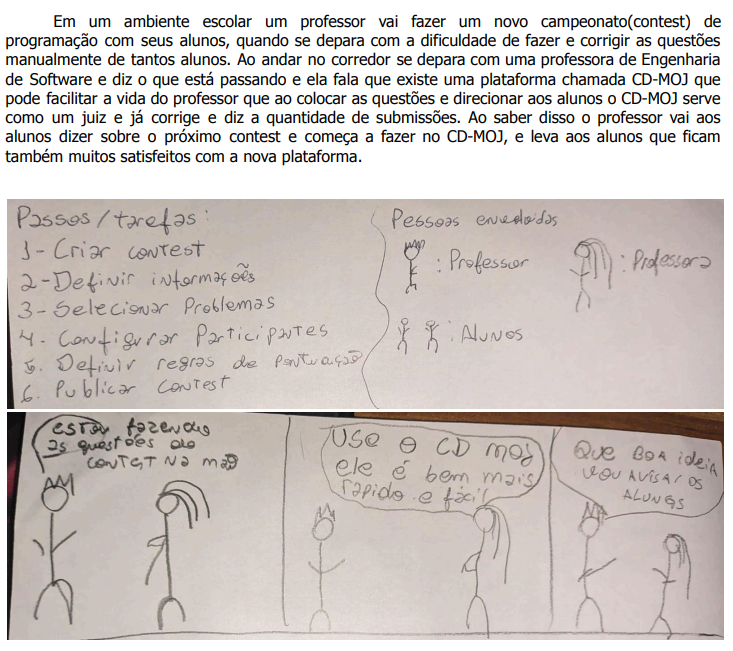 Em um ambiente escolar um professor vai fazer um novo campeonato(contest) de
programação com seus alunos, quando se depara com a dificuldade de fazer e corrigir as questões
manualmente de tantos alunos. Ao andar no corredor se depara com uma professora de Engenharia
de Software e diz o que está passando e ela fala que existe uma plataforma chamada CD-MOJ que
pode facilitar a vida do professor que ao colocar as questões e direcionar aos alunos o CD-MOJ serve
como um juiz e já corrige e diz a quantidade de submissões. Ao saber disso o professor vai aos
alunos dizer sobre o próximo contest e começa a fazer no CD-MOJ, e leva aos alunos que ficam
também muitos satisfeitos com a nova plataforma.
Passos/tarefas:
1- Criar contest
2- Definir informações
3- Selecionar Problemas
4- Configurar Participantes
5. Definir regras de pontuação
6. Publicar contest
Pessoas envolvidas
: Professor
: Professora
: Alunos
Estou fazendo
as questões do
contest na mão
USE O CD MOJ
ele é bem mais
rápido e fácil
QUE BOA ideia
VOU AVISAR OS
ALUNOS